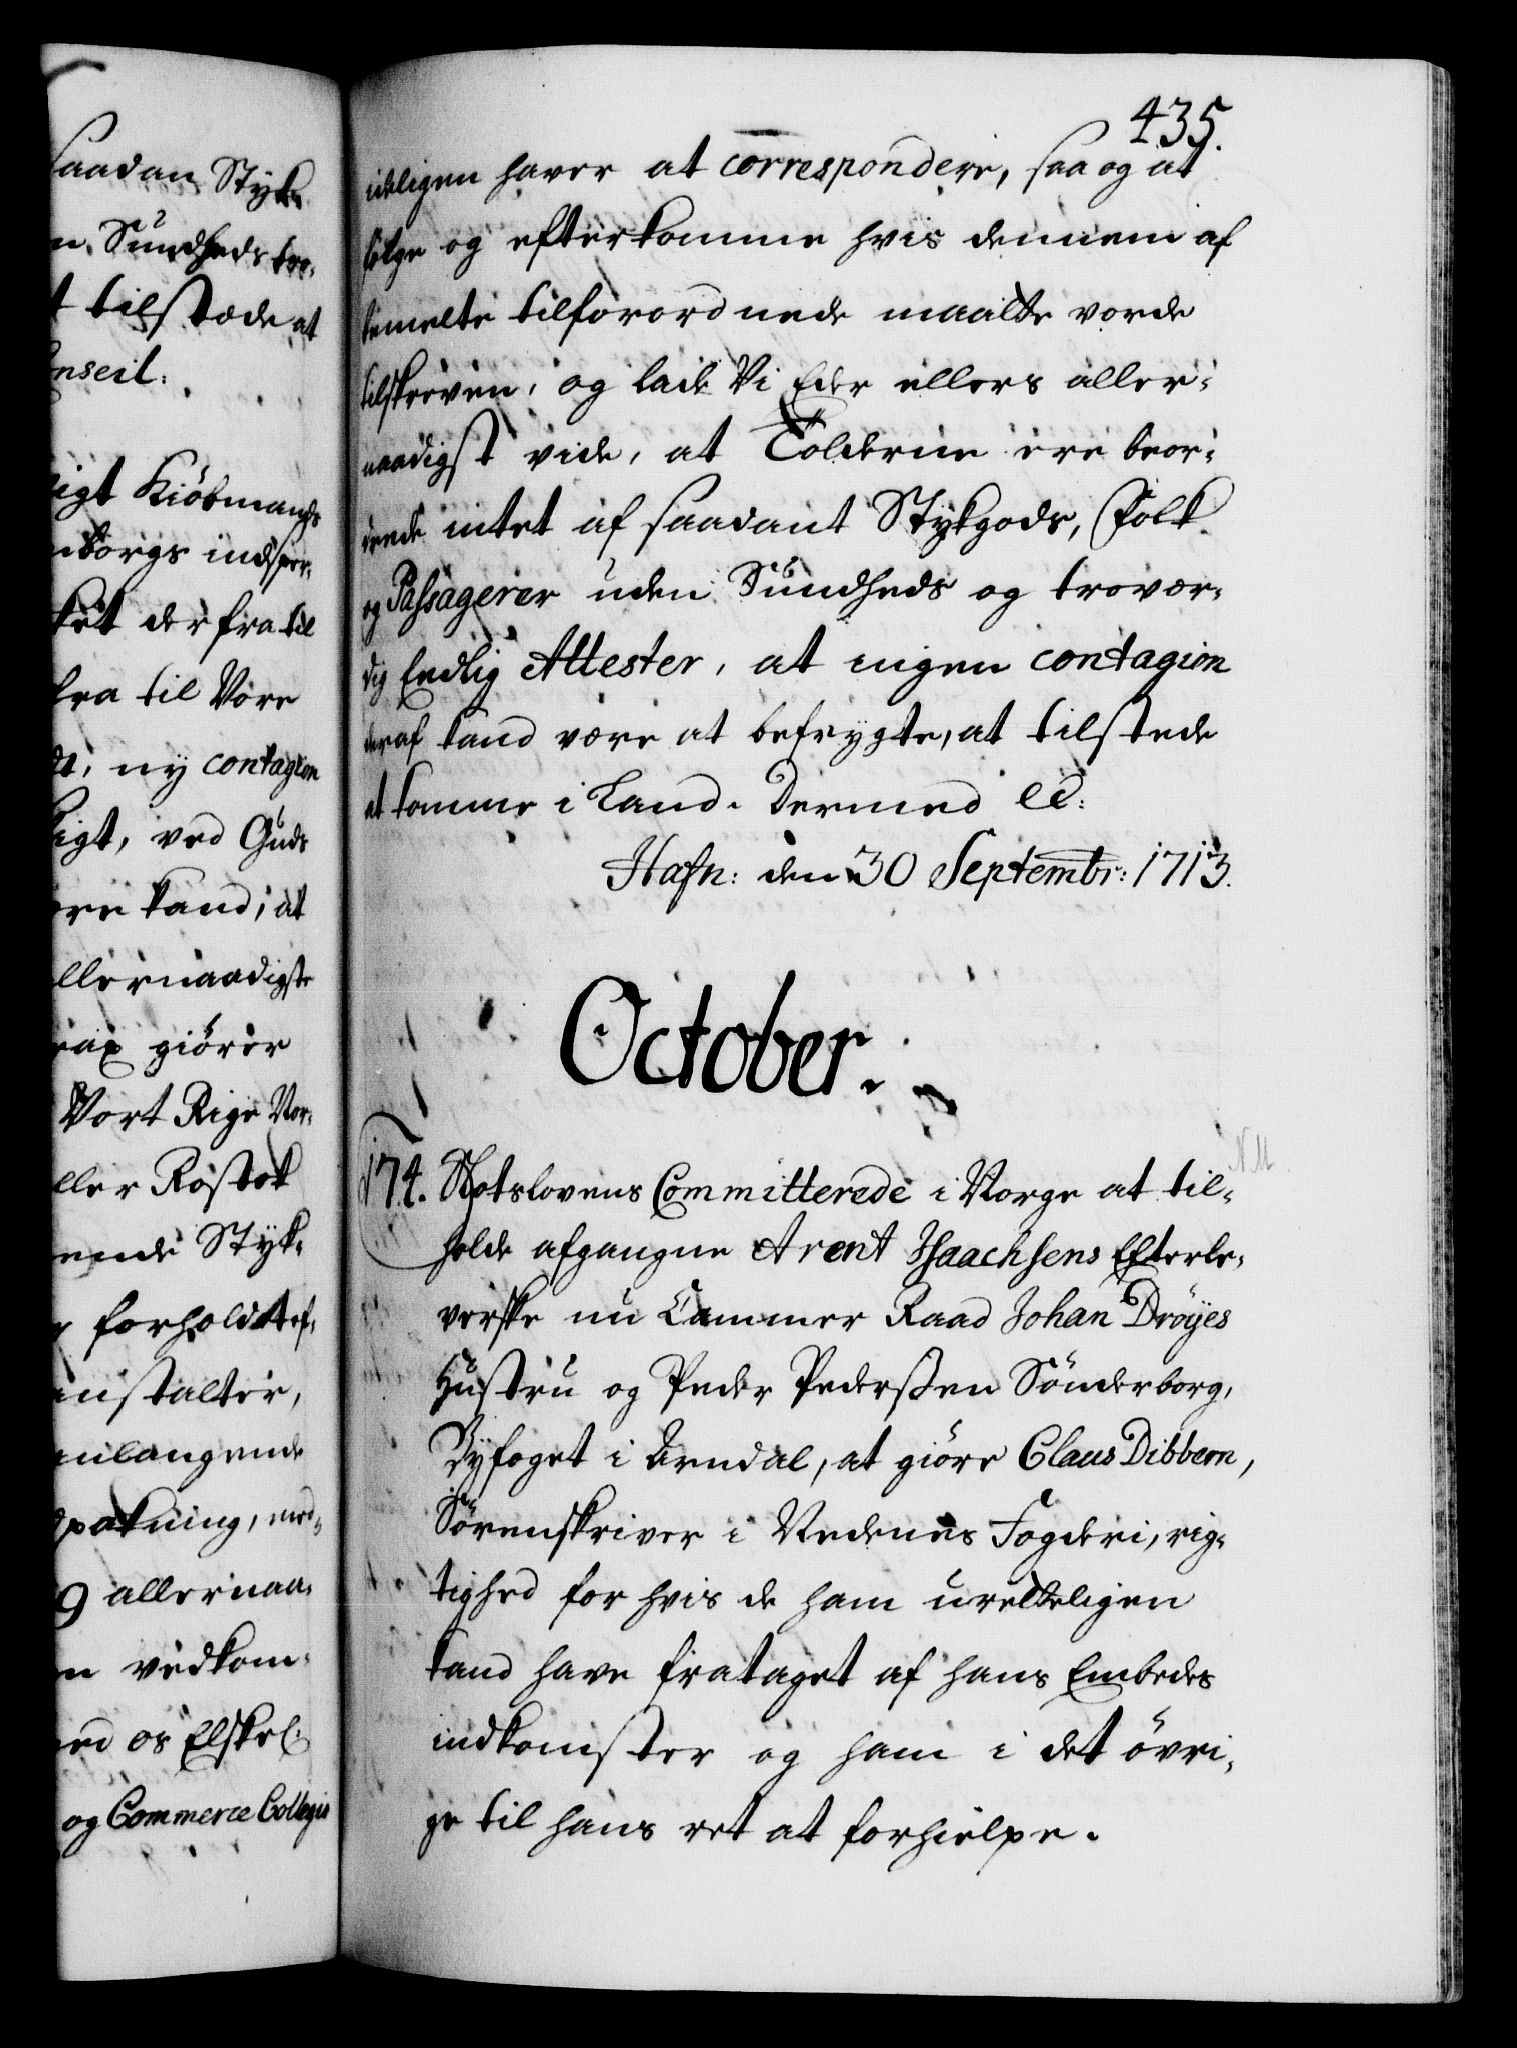 saadan Styk-
n. Sundheds tro-
t tilstæde at
nseil:
igt Kiöbmands
nborgs indsper-
ket der fra til
fra til Vore
ny contagion
igt, ved Guds
ere kand, at
llernaadigste
rax giörer
Vort Rige Nor-
ller Rostok
ende Styk-
forholdt ef-
anstalter,
anlangende
pakning, med-
g allernaa-
n vedkom-
ed os Elskel:
og Commerce Collegie
435.
ideligen haver at correspondere, saa og at
følge og efterkomme hvis dennem af
bemelte tilforordnede maatte vorde
tilskreven, og lade Vi Eder ellers aller-
naadigst vide, at Tolderne ere beor-
drede intet af saadant Stykgods, Folk
og Passagerer uden Sundheds og trovær-
dig Eedlig Attester, at ingen contagion
deraf kand være at befrygte, at tilstede
at komme i Land. Dermed etc:
Hafn: den 30 Septembr: 1713.
October.
N.M.
174. Slotslovens Committerede i Norge at til-
holde afgangne Arent Isaachsens Efterle-
verske nu Cammer Raad Johan Dröyes
Hustru og Peder Pederssen Sönderborg,
Byfoget i Arndal, at giöre Claus Dibbern,
Sörenskriver i Nedenes Fogderi, rig-
tighed for hvis de ham uretteligen
kand have frataget af hans Embedes
indkomster og ham i det övri-
ge til hans ret at forhielpe.